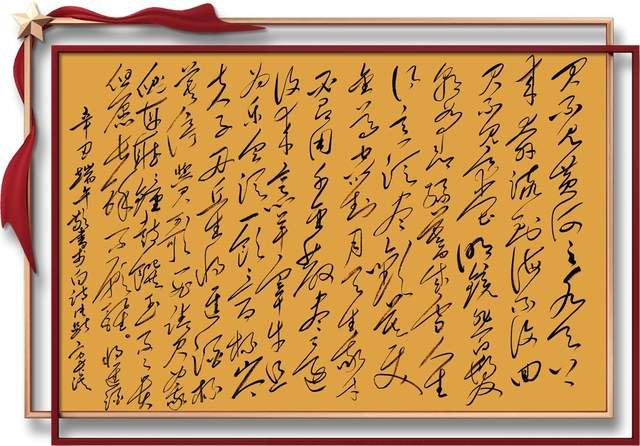 君不见黄河之水天上
来奔流到海不复回
君不见高堂明镜悲白发
朝如青丝暮成雪人生
得意须尽欢莫使
金樽空对月天生我材
必有用千金散尽还
复来烹羊宰牛且
为乐会须一饮三百杯岑
夫子丹丘生将进酒杯
莫停与君歌一曲请君为我
耳听钟鼓馔玉不足贵
但愿长醉不愿醒。将进酒
辛丑端午敬书李白诗